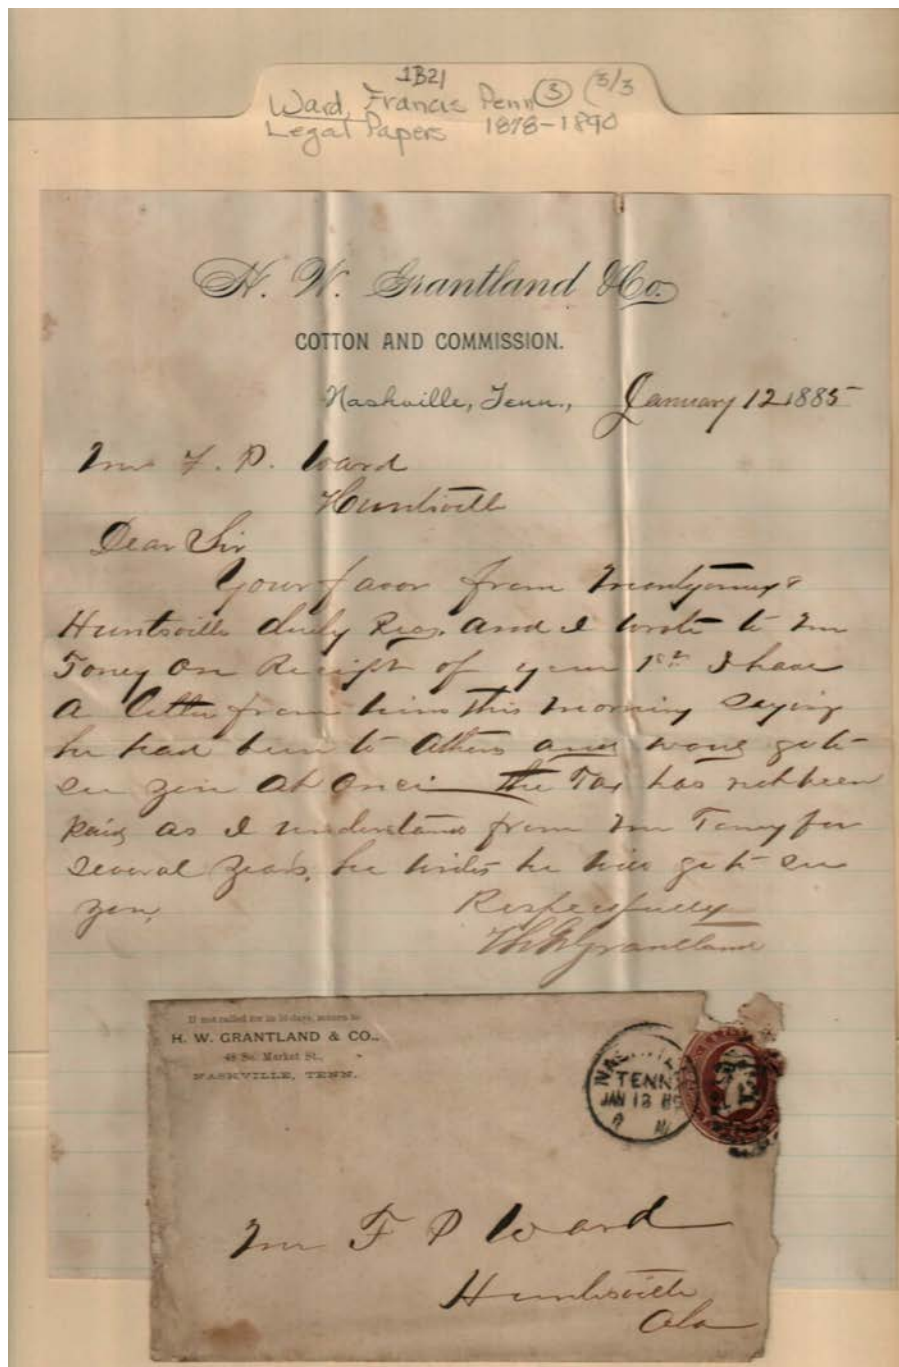 1B21
Ward, Francis Penn ③ (3/3
Legal Papers 1878-1890
H. W. Grantland & Co.
COTTON AND COMMISSION.
Nashville, Tenn., January 12 1885
Mr F. P. Ward
Huntsville
Dear Sir
Your favor from Montgomey &
Huntsville duly Rec. and I wrote to Mr
Toney on Receipt of your 1st I have
a letter from him this morning saying
he had been to Athens and would go to
see you at once the Tax has not been
paid as I understand from Mr Toney for
several years, he writes he will go to see
you,
Respectfully
Grantland
If not called for in 10 days, return to
H. W. GRANTLAND & CO.,
48 So. Market St.,
NASHVILLE, TENN.
TENN.
JAN 13
Mr F P Ward
Huntsville
Ala